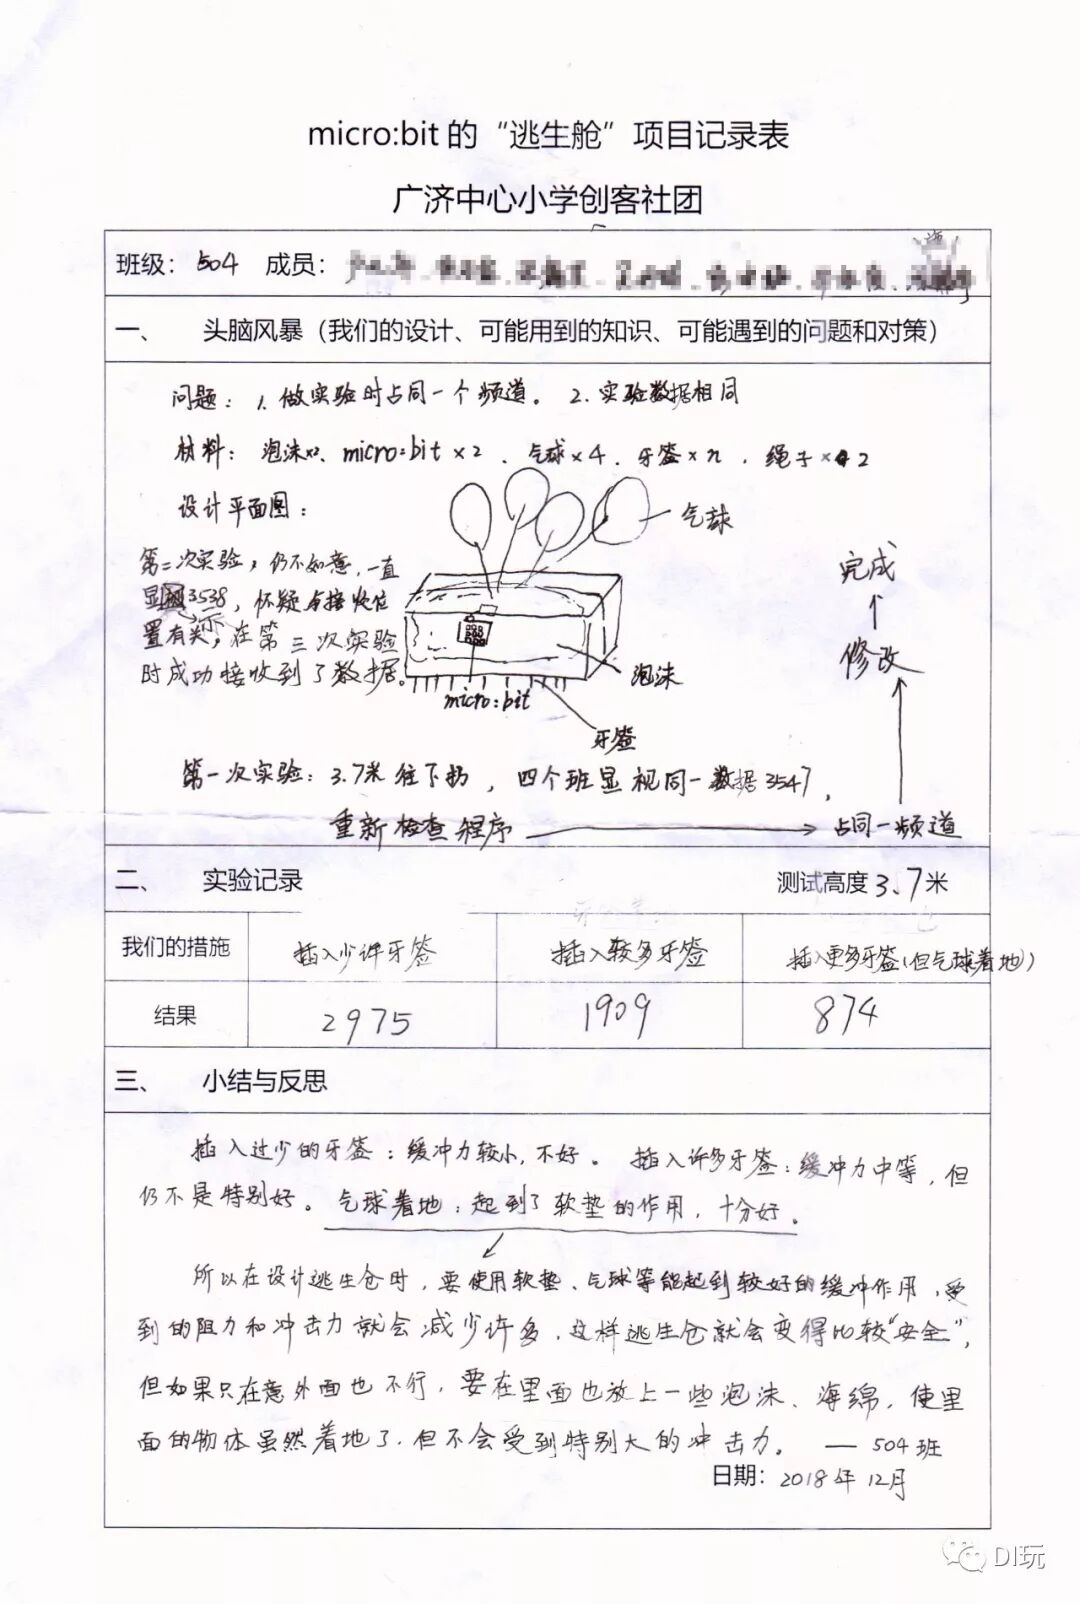 micro:bit的“逃生舱”项目记录表
广济中心小学创客社团
班级：504 成员：
一、 头脑风暴（我们的设计、可能用到的知识、可能遇到的问题和对策）
问题：1、做实验时占同一个频道。 2、实验数据相同
材料：泡沫×2、micro:bit×2、气球×4、牙签×n、绳子×2
设计平面图：
气球
第二次实验，仍不如意，一直
显示3538，怀疑与接收位
置有关，在第三次实验
时成功接收到了数据。
泡沫
micro:bit
牙签
完成
修改
第一次实验：3.7米往下扔，四个班显视同一数据3547，
重新检查程序 占同一频道
二、 实验记录 测试高度3.7米
我们的措施 插入少许牙签 插入较多牙签 插入更多牙签(但气球着地)
结果 2975 1909 874
三、 小结与反思
插入过少的牙签：缓冲力较小，不好。 插入许多牙签：缓冲力中等，但
仍不是特别好。气球着地：起到了软垫的作用，十分好。
所以在设计逃生仓时，要使用软垫、气球等能起到较好的缓冲作用，受
到的阻力和冲击力就会减少许多，这样逃生仓就会变得比较“安全”，
但如果只在意外面也不行，要在里面也放上一些泡沫、海绵，使里
面的物体虽然着地了，但不会受到特别大的冲击力。 — 504班
日期：2018年12月
DI玩